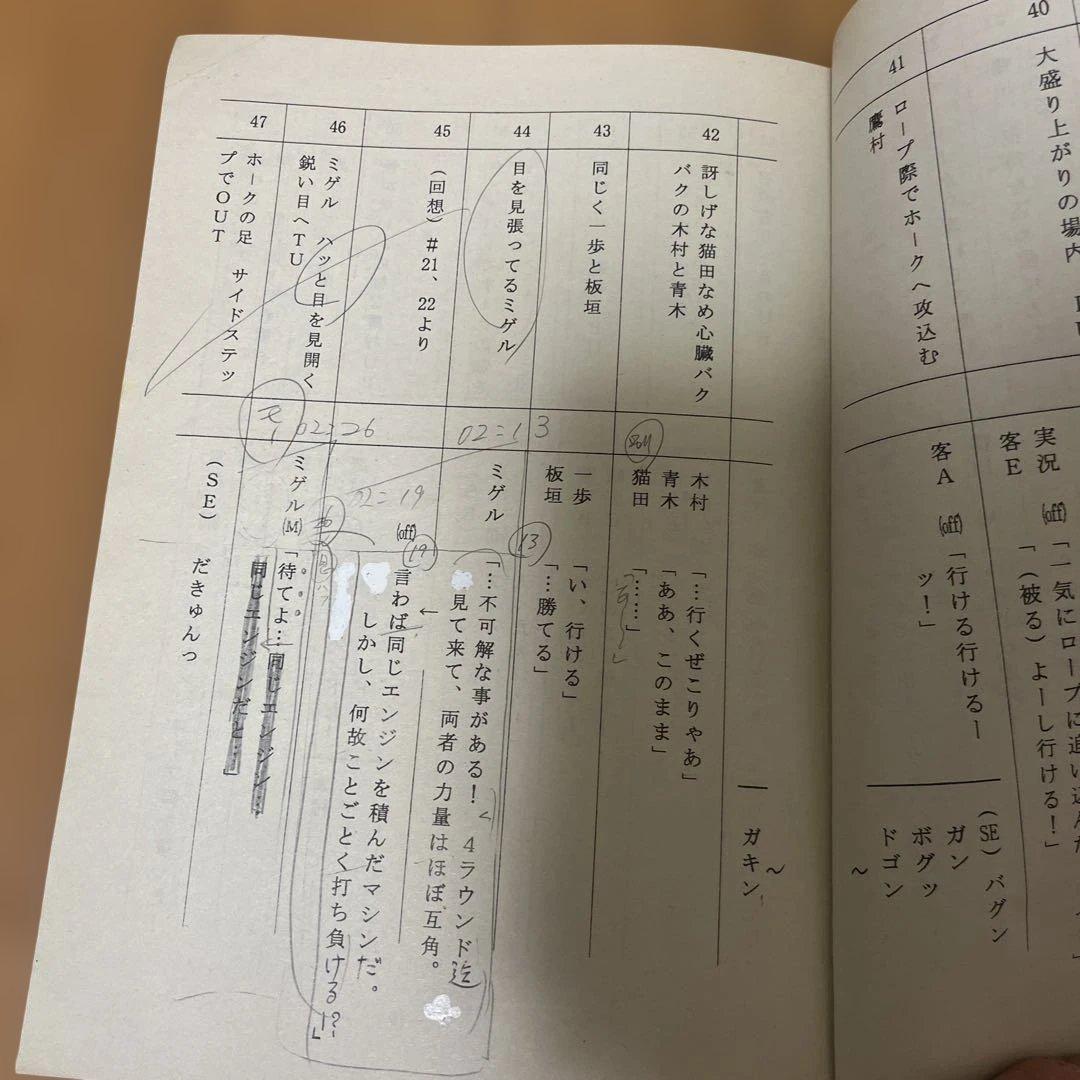 40
大盛り上がりの場内
実況 ㈹「一気にロープに追い込んだ
客E 「(被る)よーし行ける！」
41
鷹村
ロープ際でホークへ攻込む
客A (off)「行ける行けるー
ッ！」
(SE)バグン
ガン
ボグッ
ドゴン
～
ガキン
～
42
訝しげな猫田なめ心臓バク
バクの木村と青木
木村 「…行くぜこりゃあ」
青木 「ああ、このまま」
猫田 「……」
43
同じく一歩と板垣
一歩 「い、行ける」
板垣 「…勝てる」
44
目を見張ってるミゲル
02=13
13
ミゲル 「…不可解な事がある！4ラウンド迄
見て来て、両者の力量はほぼ互角。
45
(回想)#21、22より
02=19
19
(off) ↓
言わば同じエンジンを積んだマシンだ。
しかし、何故ことごとく打ち負ける!?」
46
ミゲル ハッと目を見開く
鋭い目へTU
02=26
26
ミゲル(M)「待てよ…同じエンジン…
同じエンジンだと…」
47
ホークの足 サイドステッ
プでOUT
(SE) だきゅんっ